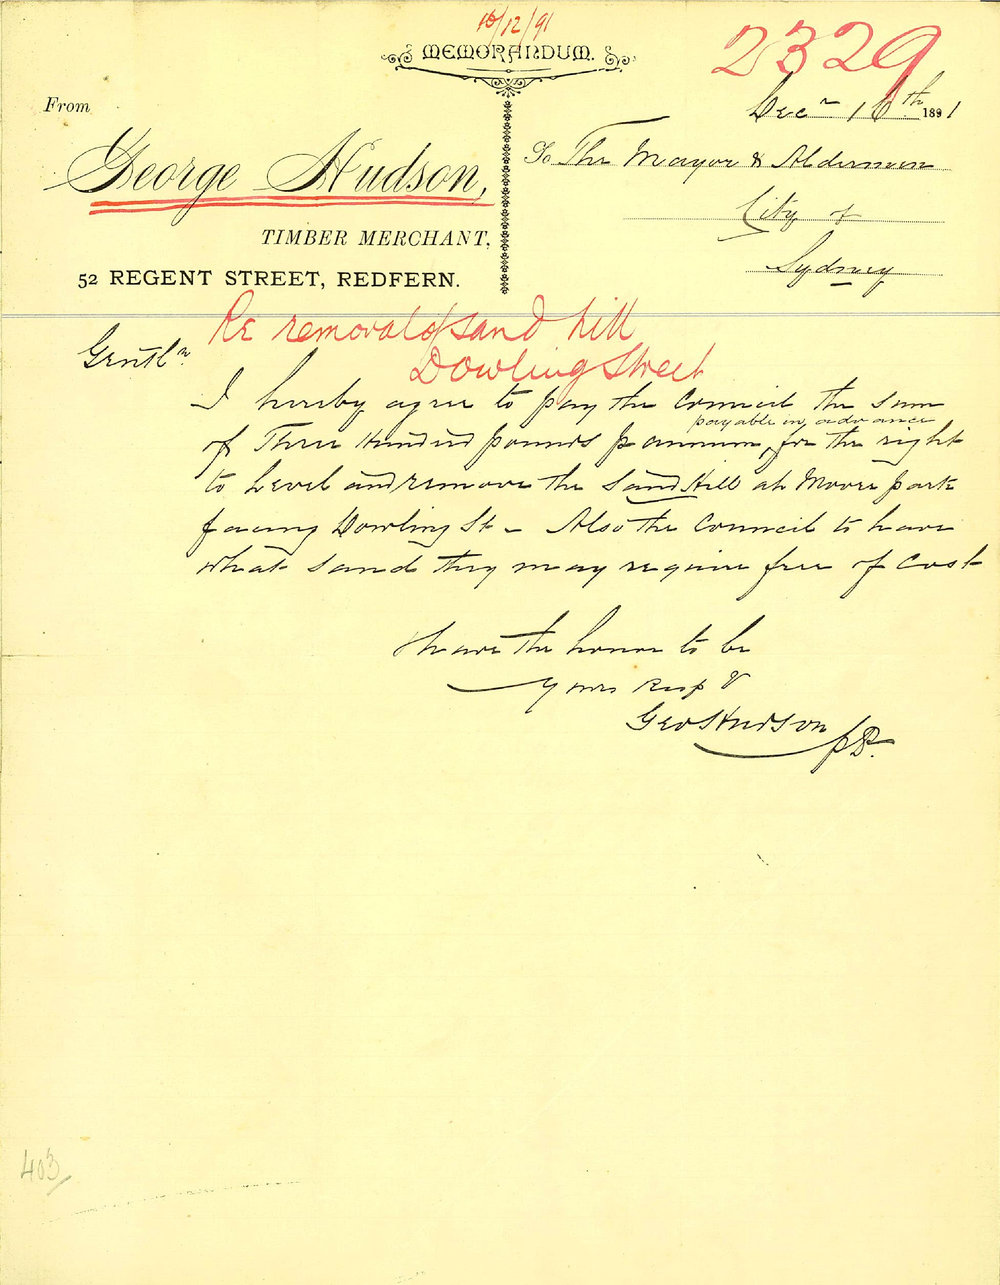 10/12/91
MEMORANDUM.
2329
From
Decr 16th 1891
George Hudson,
To The Mayor & Aldermen
City of
Sydney
TIMBER MERCHANT,
52 REGENT STREET, REDFERN.
Re removal of sand hill
Dowling Street
Gentln
I hereby agree to pay the Council the sum
payable in advance
of Three Hundred pounds p annum, for the right
to Level and remove the Sand Hill at Moore park
facing Dowling St - Also the Council to have
what sand they may require free of Cost
I have the honor to be
yours Resp
Geo Hudson
403